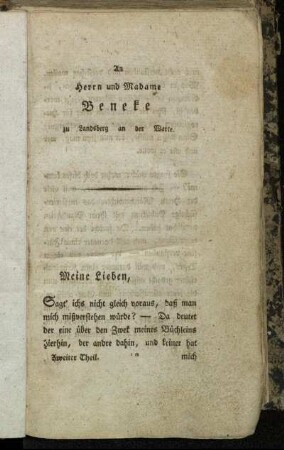 An
Herrn und Madame
Beneke
zu Landsberg an der Warte.
Meine Lieben,
Sagt' ichs nicht gleich voraus, daß man
mich mißverstehen würde? — Da deutet
der eine über den Zwek meines Büchleins
hierhin, der andre dahin, und keiner hat
Zweiter Theil. mich